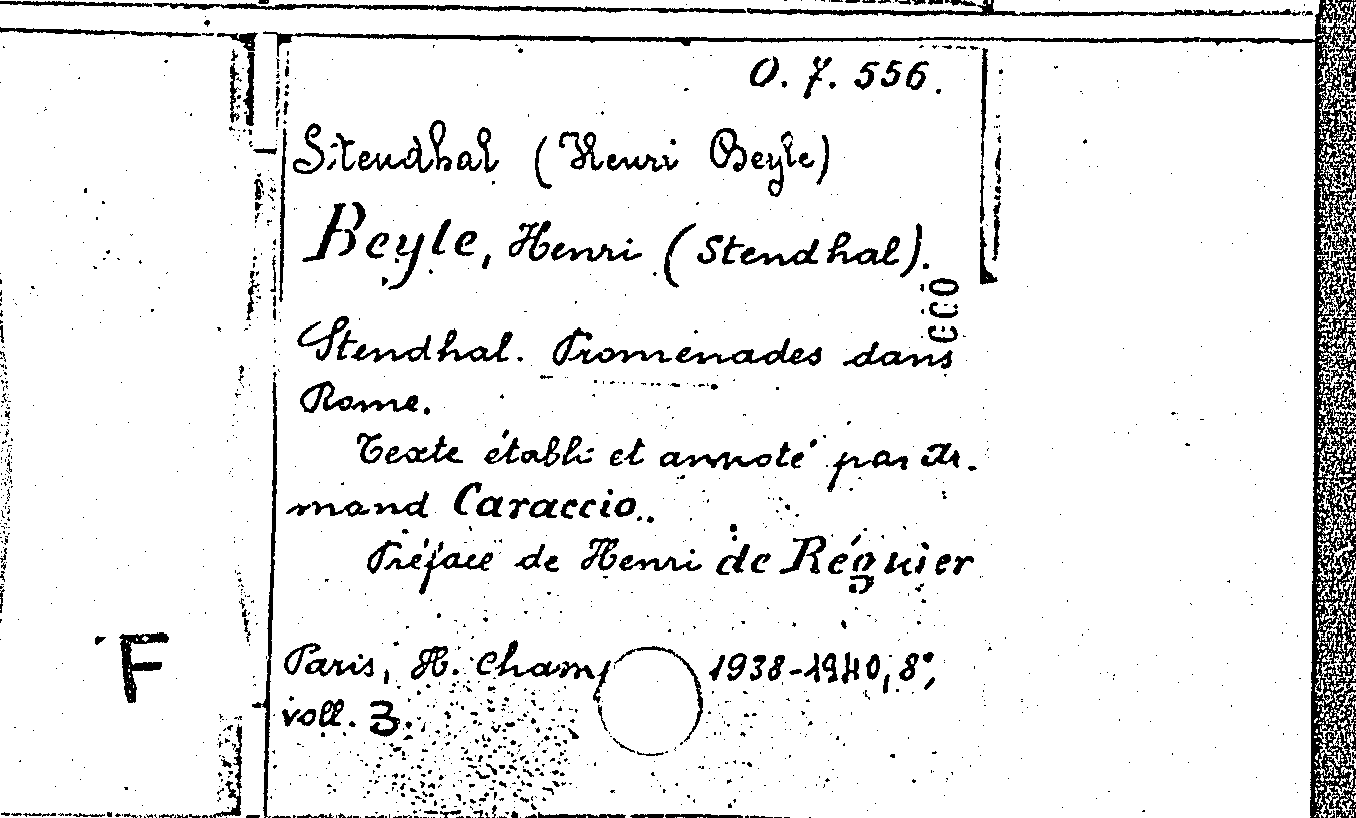 O. 7. 556.
Stendhal (Henri Beyle)
Beyle, Henri (Stendhal).
Stendhal. Promenades dans
Rome.
Texte établi et annoté par Ar-
mand Caraccio..
Préface de Henri de Régnier
F
Paris, H. Cham 1938-1940, 8°,
voll. 3.